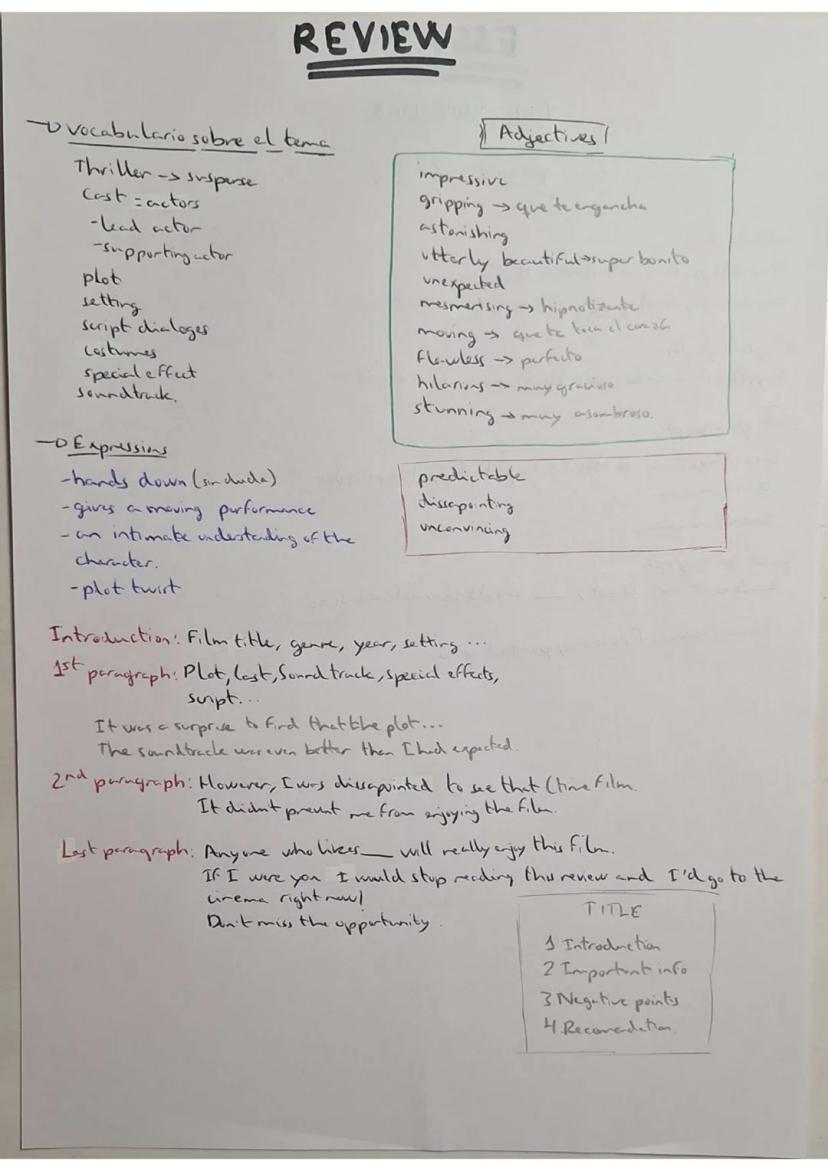 REVIEW
→ Vocabulario sobre el tema
Thriller → suspense
Cast = actors
- lead actor
- supporting actor
plot
setting
script dialoges
costumes
special effect
soundtrack.
Adjectives
impressive
gripping → que te engancha
astonishing
utterly beautiful → super bonito
unexpected
mesmerising → hipnotizante
moving → que te toca el corazón
flawless → perfecto
hilarious → muy gracioso
stunning → muy asombroso.
predictable
dissapointing
unconvincing
→ Expressions
- hands down (sin duda)
- gives a moving performance
- an intimate understanding of the
character.
- plot twist
Introduction: Film title, genre, year, setting ...
1st paragraph: Plot, Cast, Soundtrack, special effects,
script...
It was a surprise to find that the plot...
The soundtrack was even better than I had expected.
2nd paragraph: However, I was dissapointed to see that film.
It didn't prevent me from enjoying the film.
Last paragraph: Anyone who likes ___ will really enjoy this film.
If I were you I would stop reading this review and I'd go to the
cinema right now!
Don't miss the opportunity.
TITLE
1 Introduction
2 Important info
3 Negative points
4 Recomendation